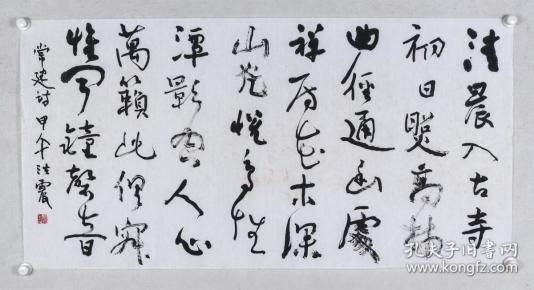 清晨入古寺
初日照高林
曲徑通幽處
禪房花木深
山光悅鳥性
潭影空人心
萬籟此俱寂
惟聞鐘磬音
常建詩 甲午
孔夫子旧书网
www.kongfz.com